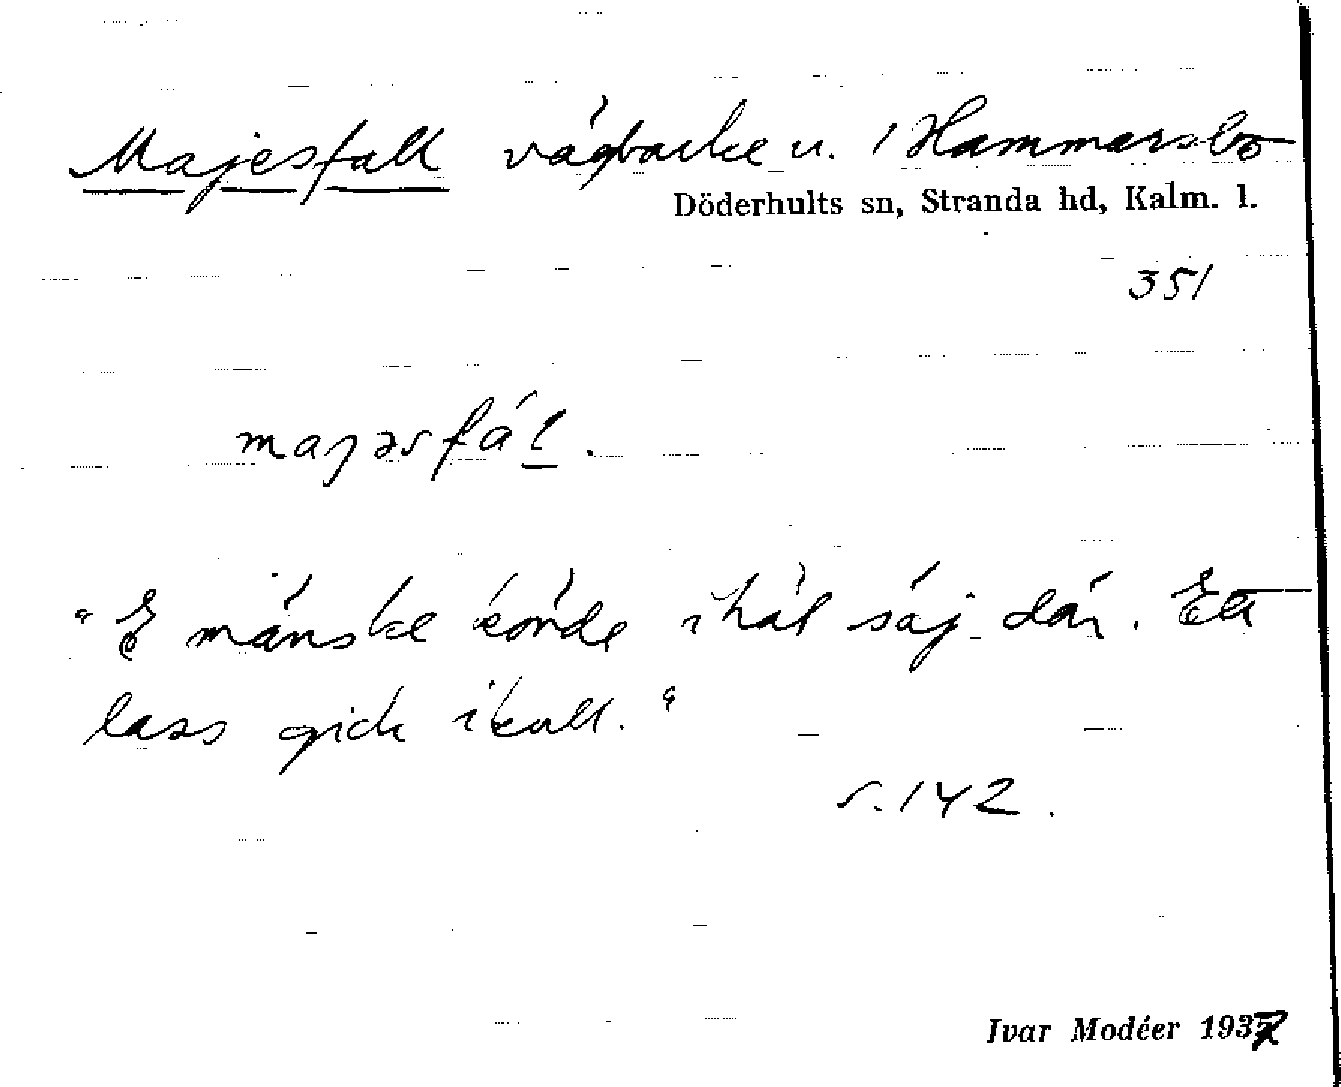 Majesfall vägbacke u. 1 Hammarsbo
Döderhults sn, Stranda hd, Kalm. l.
351
majəsfál.
"E mänske körde ihäl säj där. Ett
lass gick ikull."
s. 142.
Ivar Modéer 1937